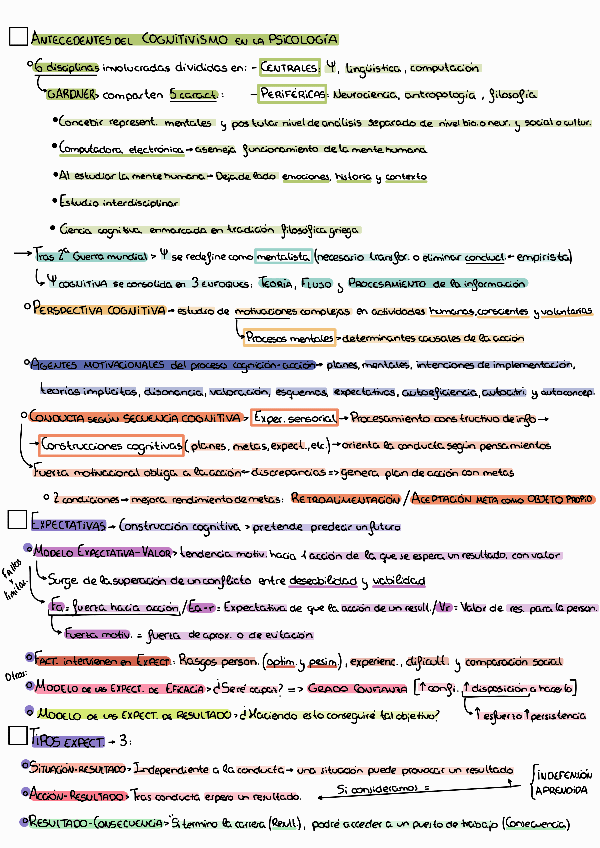 ANTECEDENTES DEL COGNITIVISMO EN LA PSICOLOGÍA
6 disciplinas involucradas divididas en: - CENTRALES: Ψ, lingüística, computación
GARDNER> comparten 5 caract: - PERIFÉRICAS: Neurociencia, antropología, filosofía
• Concebir represent. mentales y postular nivel de análisis separado de nivel bio. o neur. y social o cultur.
• Computadora electrónica → asemeja funcionamiento de la mente humana
• Al estudiar la mente humana → Deja de lado emociones, historia y contexto
• Estudio interdisciplinar
• Ciencia cognitiva enmarcada en tradición filosófica griega
→ Tras 2ª Guerra mundial > Ψ se redefine como mentalista (necesario transfor. o eliminar conduct. ← empirista)
Ψ COGNITIVA se consolida en 3 ENFOQUES: TEORÍA, FLUJO y PROCESAMIENTO de la información
PERSPECTIVA COGNITIVA → estudio de motivaciones complejas en actividades humanas, conscientes y voluntarias
Procesos mentales > determinantes causales de la acción
AGENTES MOTIVACIONALES del proceso cognición-acción → planes, mentales, intenciones de implementación,
teorías implícitas, disonancia, valoración, esquemas, expectativas, autoeficiencia, autoctri. y autoconcep.
CONDUCTA SEGÚN SECUENCIA COGNITIVA > Exper. sensorial → Procesamiento constructivo de info →
→ Construcciones cognitivas (planes, metas, expect., etc.) → orienta la conducta según pensamientos
Fuerza motivacional obliga a la acción ← discrepancias => genera plan de acción con metas
2 condiciones → mejora rendimiento de metas: RETROALIMENTACIÓN / ACEPTACIÓN META COMO OBJETO PROPIO
EXPECTATIVAS → Construcción cognitiva > pretende predecir un futuro
MODELO EXPECTATIVA-VALOR > tendencia motiv. hacia 1 acción de la que se espera un resultado, con valor
Fallos y limitac.
Surge de la superación de un conflicto entre deseabilidad y viabilidad
Fa = fuerza hacia acción / Ea-r = Expectativa de que la acción de un result. / Vr = Valor de res. para la person.
Fuerza motiv. = fuerza de aprox. o de evitación
FACT. intervienen en EXPECT: Rasgos person. (optim. y pesim), experienc., dificult. y comparación social
Otros:
MODELO DE LAS EXPECT. DE EFICACIA > ¿Seré capaz? => GRADO CONFIANZA [↑ confi. ↑ disposición a hacerlo]
MODELO DE LAS EXPECT. DE RESULTADO > ¿Haciendo esto conseguiré tal objetivo? ↑ esfuerzo ↑ persistencia
TIPOS EXPECT → 3:
SITUACIÓN-RESULTADO > Independiente a la conducta → una situación puede provocar un resultado
Si consideramos =
{INDEFENSIÓN APRENDIDA
ACCIÓN-RESULTADO > Tras conducta espero un resultado.
RESULTADO-CONSECUENCIA > "Si termino la carrera (Result), podré acceder a un puesto de trabajo (Consecuencia)